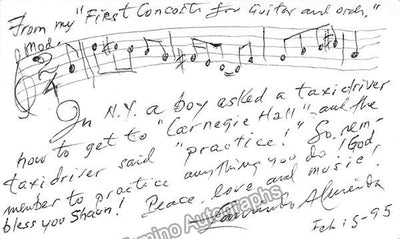 From my "First Concerto for Guitar and orch."
Mod.
2
4
In N.Y. a boy asked a taxi driver
how to get to "Carnegie Hall" and the
taxi driver said "practice!" So, rem-
member to practice anything you do! God
bless you Shawn! Peace, love and music!
Laurindo Almeida
Feb: 5-95
Autographs